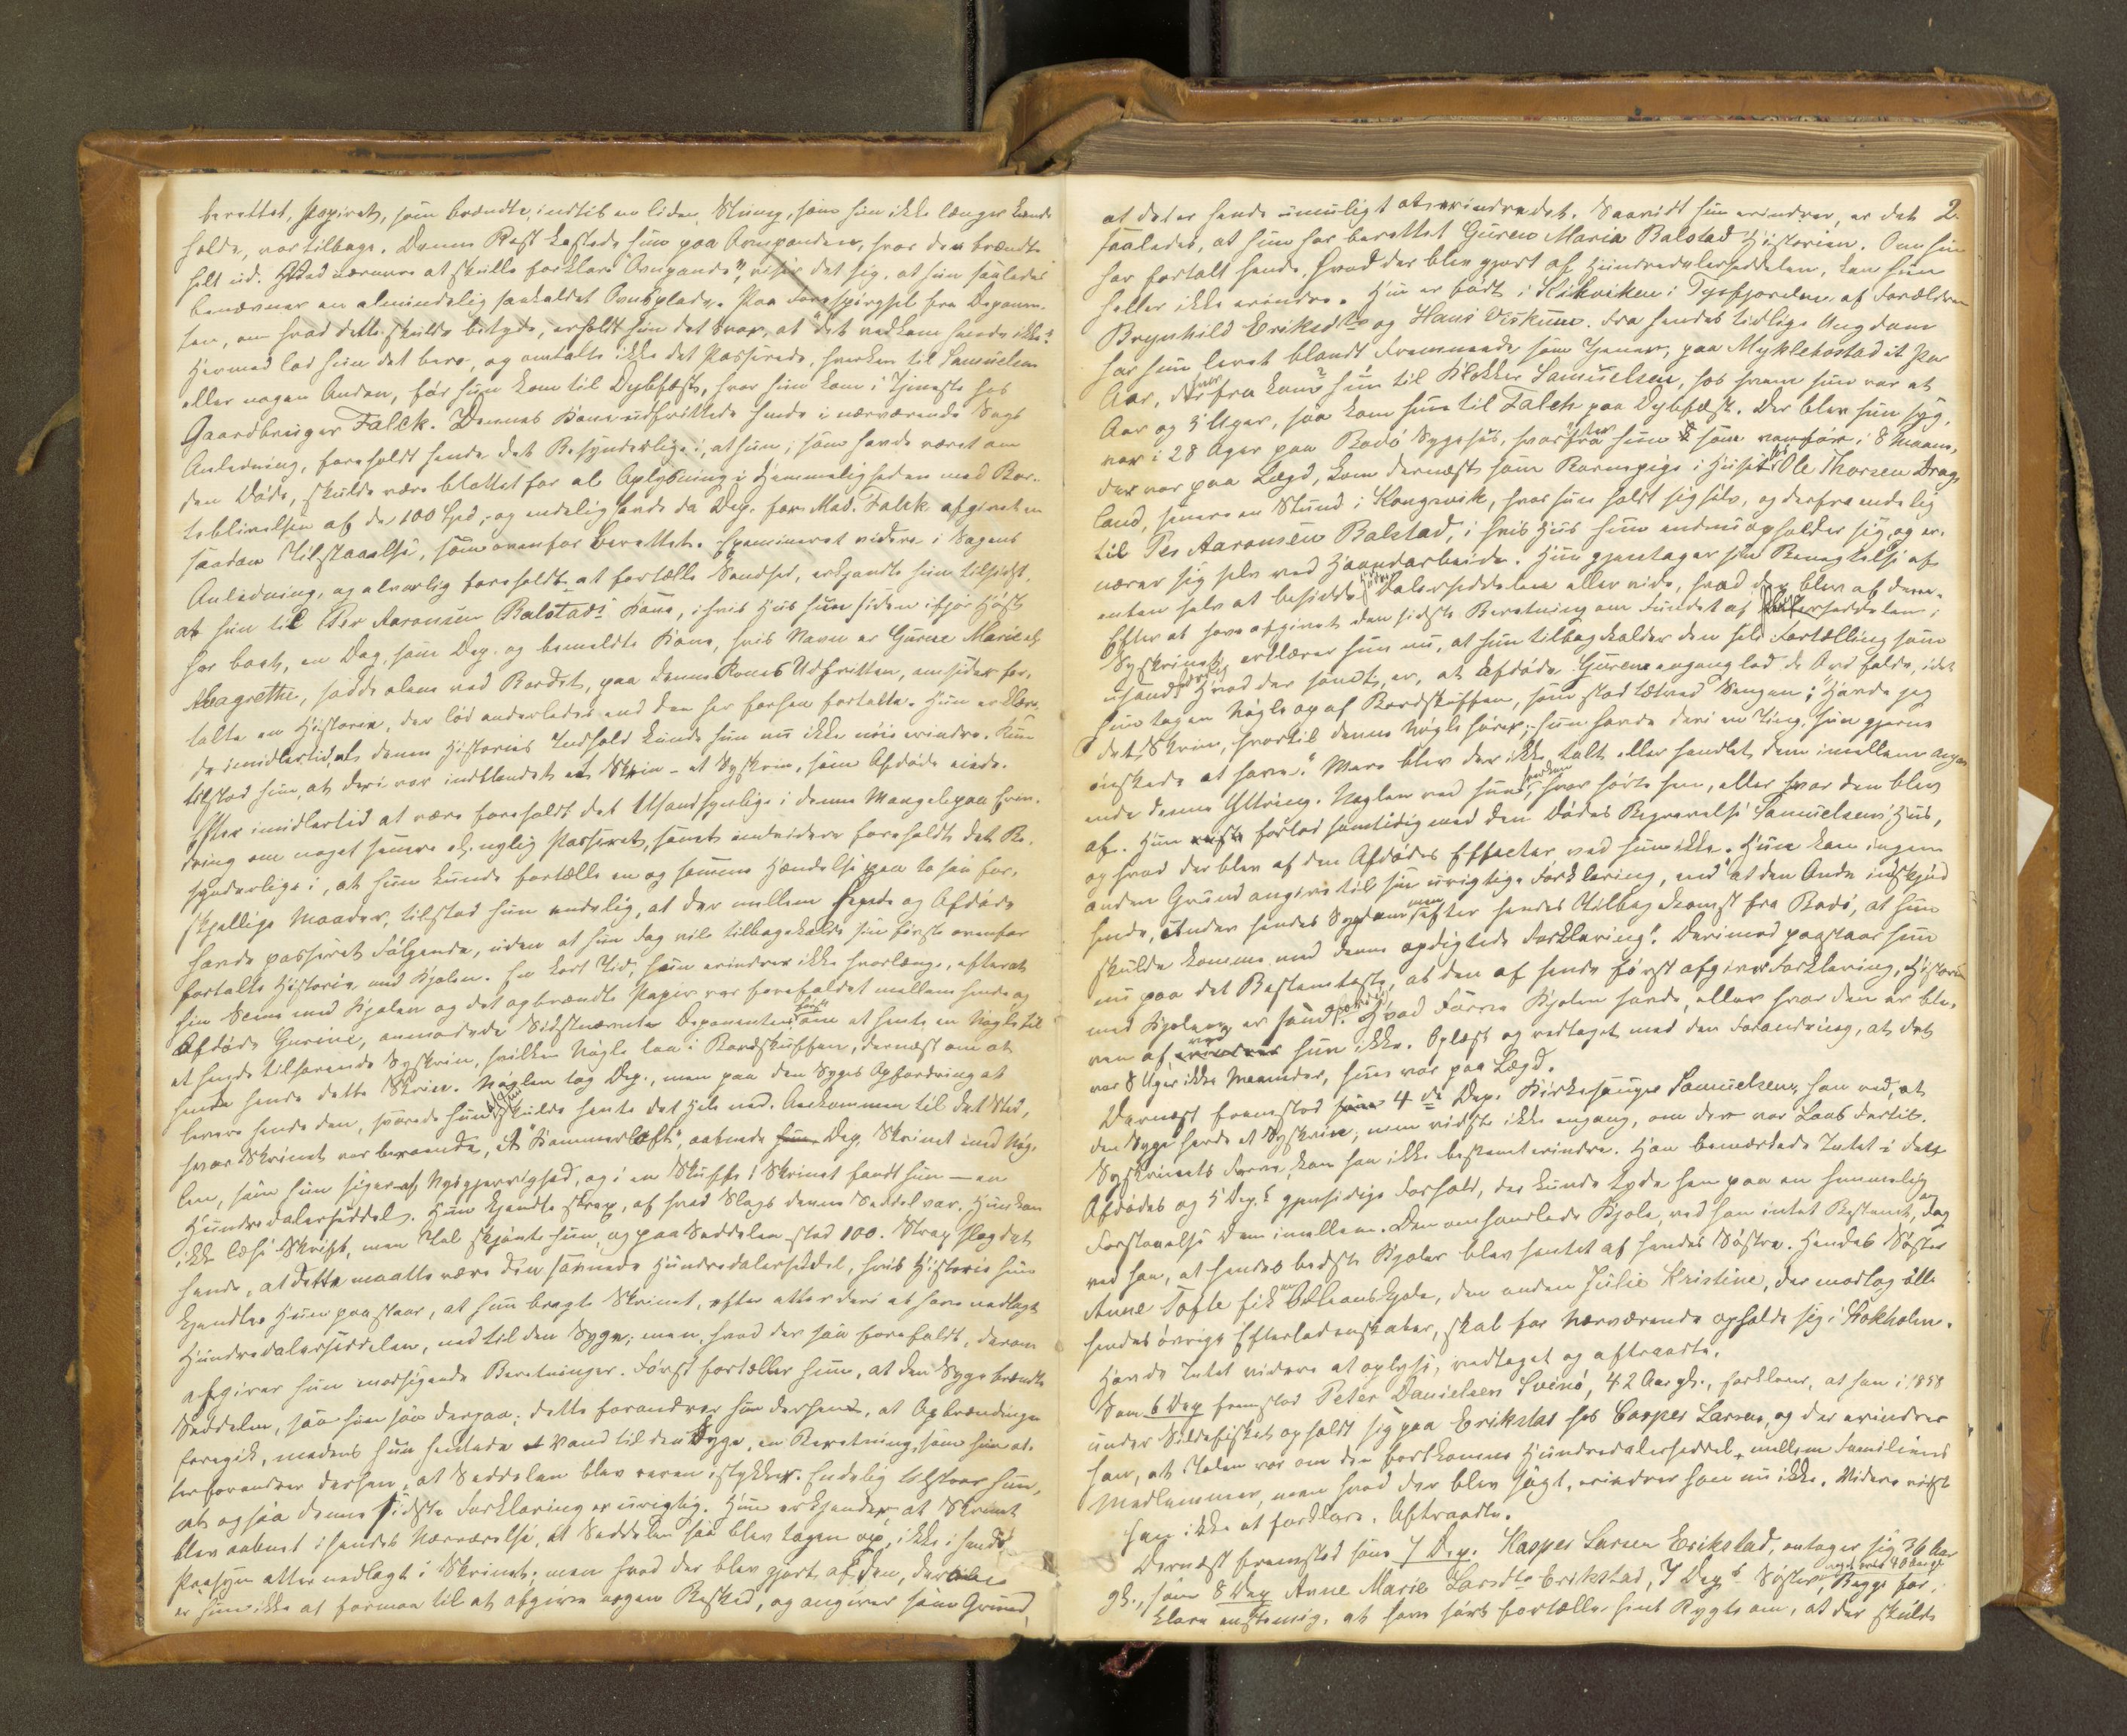 berettet, Papiret, som brændte, indtil en liden Stump, som hun ikke længer kunde
holde, var tilbage. Denne Rest kastede hun paa Ovnspanden, hvor den brændte
helt ud. Ved nærmere at skulle forklare "Ovnpande", viser det sig, at hun saaledes
benævner en almindelig saakaldet Ovnsplade. Paa Forespørgsel fra Deponen-
ten, om hvad dette skulde betyde, erholdt hun det Svar, at "det vedkom hende ikke".
Hermed lod hun det bero, og omtalte ikke det Passerede, hverken til Samuelsen
eller nogen Anden, før hun kom til Dybfæst, hvor hun kom i Tjeneste hos
Gaardbruger Falck. Dennes Kone udfrittede hende i nærværende Sags
Anledning, foreholdt hende det Besynderlige i, at hun, som havde været om
den Døde, skulde være blottet for al Oplysning i Hemmeligheden med Bor-
teblivelsen af de 100 Spd, og endelig havde da Dep. for Mad. Falck afgivet en
saadan Tilstaaelse, som ovenfor berettet. Examineret videre i Sagens
Anledning, og alvorlig foreholdt at fortælle Sandhed, erkjendte hun tilsidst,
at hun til Per Aaronsen Balstads Kone, i hvis Huus hun siden ifjor Høst
har boet, en Dag, som Dep. og bemeldte Kone, hvis Navn er Gurine Marie ell.
Magrethe, sadde alene ved Bordet, paa denne Kones Udfritten, omsider for-
talte en Historie, der lød anderledes end den her forhen fortalte. Hun erklære-
de imidlertid, at denne Histories Indhold kunde hun nu ikke nøie erindre. Kun
tilstod hun, at deri var indblandet et Skrin - et Syskrin, som Afdøde eiede.
Efter imidlertid at være foreholdt det Usandsynlige i denne Mangel paa Erin-
dring om noget senere ell. nylig Passeret, samt endvidere foreholdt det Be-
synderlige i, at hun kunde fortælle en og samme Hændelse paa to saa for-
skjellige Maader, tilstod hun endelig, at der mellem hende og Afdøde
havde passeret Følgende, uden at hun dog vil tilbagekalde sin første ovenfor
fortalte Historie med Kjolen. En kort Tid, hun erindrer ikke hvorlænge, efterat
hin Scene med Kjolen og det opbrændte Papir var forefaldet mellem hende og
Afdøde Gurine, anmodede Sidstnævnte Deponenten først om at hente en Nøgle til
et hende tilhørende Syskrin, hvilken Nøgle laa i Bordskuffen, dernæst om at
hente hende dette Skrin. Nøglen tog Dep., men paa den Syges Opfordring at
levere hende den, svarede hun, at hun skulde hente det hele ned. Ankommen til det Sted,
hvor Skrinet var beroende, et "Kammerloft", aabnede Dep. Skrinet med Nøg-
len, som hun siger af Nysgjerrighed, og i en Skuffe i Skrinet fandt hun — en
Hundredalerseddel. Hun kjendte strax, af hvad Slags denne Seddel var. Hun kan
ikke læse Skrift, men Tal skjønte hun, og paa Seddelen stod 100. Strax slog det
hende, at dette maatte være den savnede Hundredalerseddel, hvis Historie hun
kjendte. Hun paastaar, at hun bragte Skrinet, efter atter deri at have nedlagt
Hundredalerseddelen, ned til den Syge; men, hvad der saa forefaldt, derom
afgiver hun modsigende Beretninger. Først fortæller hun, at den Syge brændte
Seddelen, saa hun saa derpaa; dette forandrer hun derhen, at Opbrændingen
foregik, medens hun hentede Vand til den Syge, en Beretning, som hun at-
ter forandrer derhen, at Seddelen blev reven istykker. Endelig tilstaar hun,
at ogsaa denne sidste Forklaring er urigtig. Hun erkjender, at Skrinet
blev aabnet i hendes Nærværelse, at Seddelen saa blev tagen op, ikke i hendes
Paasyn atter nedlagt i Skrinet; men hvad der blev gjort af den, derom
er hun ikke at formaa til at afgive nogen Besked, og angiver som Grund,
2.
at det er hende umuligt at erindre det. Saavidt hun erindrer, er det
saaledes, at hun har berettet Guren Maria Balstad Historien. Om hun
har fortalt hende, hvad der blev gjort af Hundredalerseddelen, kan hun
heller ikke erindre. Hun er født i Kikviken i Tysfjorden af Forældre
Brynhild Eriksdtr og Hans Viskum. Fra hendes tidlige Ungdom
har hun levet blandt Fremmede som Tjener, paa Myklebostad et Par
Aar, derfra kom hun til Klokker Samuelsen, hos hvem hun var et
Aar og 5 Uger, saa kom hun til Falch paa Dybfæst. Der blev hun syg,
var i 28 Uger paa Bodø Sygehus, hvorefter hun som vanfør i 8 Maan.
der var paa Lægd, kom dernæst som Barnepige i Huset hos Ole Thorsen Drag-
land, senere en Stund i Kongsvik, hvor hun holdt sig selv, og derfra endelig
til Per Aaronsen Balstad, i hvis Huus hun endnu opholder sig, og er-
nærer sig selv ved Haandarbeide. Hun gjentager sin Benegtelse af
enten selv at besidde Dalerseddelen eller vide, hvad der blev af den.
Efter at have afgivet den sidste Beretning om Fundet af Seddelen i
Syskrinet, erklærer hun nu, at hun tilbagekalder den hele Fortælling som
usandfærdig. Hvad der sandt, er, at Afdøde Gurene engang lod de Ord falde, idet
hun tog en Nøgle op af Bordskuffen, som stod tæt ved Sengen: "Havde jeg
det Skrin, hvortil denne Nøgle hører; hun havde deri en Ting, hun gjerne
ønskede at have." Mere blev der ikke talt eller handlet dem imellem angaa-
ende denne Yttring. Nøglen ved hun hverken, hvor hørte hen, eller hvor den blev
af. Hun forlod samtidig med den Dødes Begravelse Samuelsens Huus,
og hvad der blev af den Afdødes Effecter ved hun ikke. Hun kan ingen
anden Grund angive til sin urigtige Forklaring, end "at den Onde indskjød
hende, under hendes Sygdom efter hendes Tilbagekomst fra Bodø, at hun
skulde komme med denne opdigtede Forklaring". Derimod paastaar hun
nu paa det Bestemteste, at den af hende først afgivne Forklaring, Historien
med Kjolen, er sandfærdig. Hvad Farve Kjolen havde, eller hvor den er ble-
ven af ved hun ikke. Oplæst og vedtaget med den Forandring, at det
var 8 Uger ikke Maaneder, hun var paa Lægd.
Dernæst fremstod 4de Dep. Kirkesanger Samuelsen; han ved, at
den Syge havde et Syskrin; men vidste ikke engang, om der var Laas dertil.
Syskrinets Farve kan han ikke bestemt erindre. Han bemærkede Intet i det
Afdødes og 5 Dep.s gjensidige Forhold, der kunde tyde hen paa en hemmelig
Forstaaelse dem imellem. Den omhandlede Kjole, ved han intet Bestemt om, dog
ved han, at hendes bedste Kjoler blev hentet af hendes Søstre. Hendes Søster
Anne Tofte fik en Orleanskjole, den anden Julie Kristine, der modtog alle
hendes øvrige Efterladenskaber, skal for Nærværende opholde sig i Stokholm.
Havde Intet videre at oplyse, vedtaget og aftraadte.
Som 6 Dep fremstod Peter Danielsen Svenø, 42 Aar gl., forklarer, at han i 1858
under Sildefisket opholdt sig paa Erikstad hos Casper Larsen, og der erindrer
han, at Talen var om den bortkomne Hundredalerseddel, mellem Familiens
Medlemmer, men hvad der blev sagt, erindrer han nu ikke. Videre vidste
han ikke at forklare. Aftraadte.
Dernæst fremstod som 7 Dep. Kasper Larsen Erikstad, antager sig 36 Aar
gl., som 8 Dep Anne Marie Larsdtr Erikstad, 7 Dep.s Søster, 40 Aar gl. Begge for-
klare enstemmig, at have hørt fortælle sent Rygte om, at der skulde